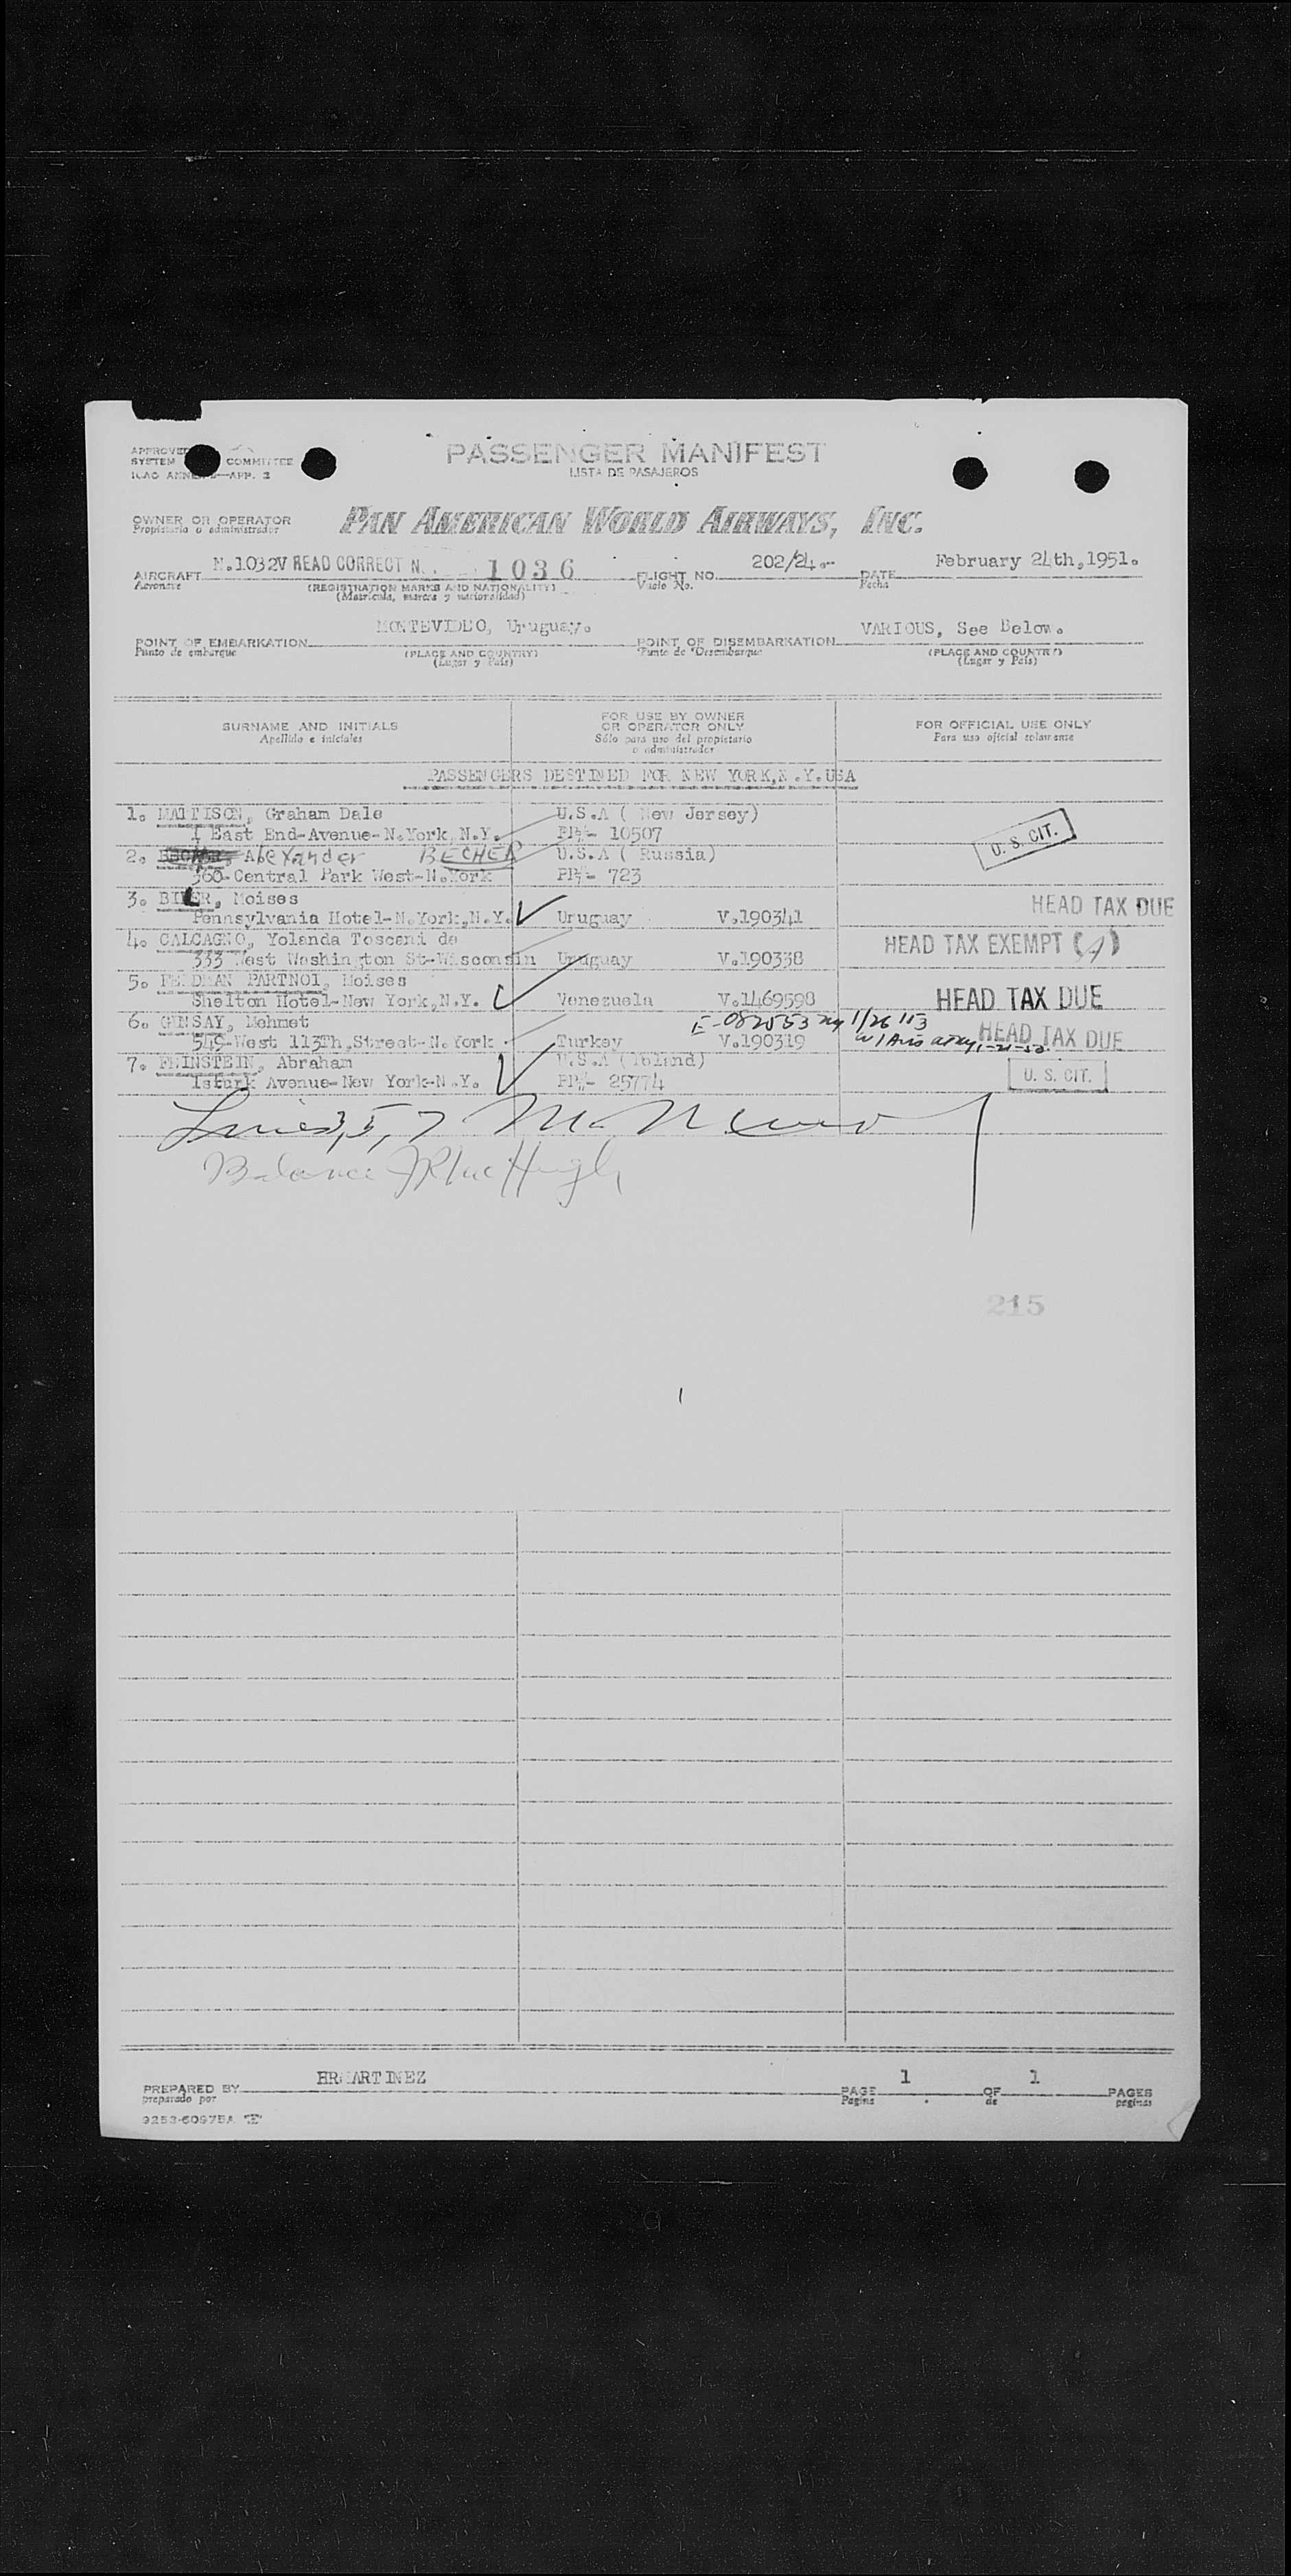 PASSENGER MANIFEST
LISTA DE PASAJEROS
APPROVED
SYSTEM COMMITTEE
ICAO APP. 2
OWNER OR OPERATOR PAN AMERICAN WORLD AIRWAYS, INC.
Propietario o administrador
AIRCRAFT N.1032V READ CORRECT N. 1036 FLIGHT NO. 202/24.- DATE February 24th,1951.
Aeronave (REGISTRATION MARKS AND NATIONALITY) Vuelo No. Fecha
(Matricula, marcas y nacionalidad)
POINT OF EMBARKATION MONTEVIDEO, Uruguay. POINT OF DISEMBARKATION VARIOUS, See Below.
Punto de embarque (PLACE AND COUNTRY) Punto de Desembarque (PLACE AND COUNTRY)
(Lugar y País) (Lugar y País)
SURNAME AND INITIALS FOR USE BY OWNER OR OPERATOR ONLY FOR OFFICIAL USE ONLY
Apellido e iniciales Sólo para uso del propietario o administrador Para uso oficial solamente
PASSENGERS DESTINED FOR NEW YORK,N.Y.USA
1. MATTISON, Graham Dale U.S.A ( New Jersey)
1 East End-Avenue-N.York,N.Y. PP#- 10507
2. Alexander BECHER U.S.A ( Russia) U. S. CIT.
360-Central Park West-N.York PP#- 723
3. Moises HEAD TAX DUE
Pennsylvania Hotel-N.York,N.Y. Uruguay V.190341
4. CALCAGNO, Yolanda Toscani de HEAD TAX EXEMPT
333 West Washington St-Wisconsin Uruguay V.190338
5. FELDMAN PARTNOI, Moises
Shelton Hotel-New York,N.Y. Venezuela V.1469598 HEAD TAX DUE
6. GENSAY, Mehmet E-082553
549-West 113Th.Street-N.York Turkey V.190319 HEAD TAX DUE
7. FEINSTEIN, Abraham U.S.A (Poland)
Avenue-New York-N.Y. PP#- 25774 U. S. CIT.
Lines 3, 5, 7
Balance
215
PREPARED BY HRMARTINEZ PAGE 1 OF 1 PAGES
preparado por Pagina de paginas